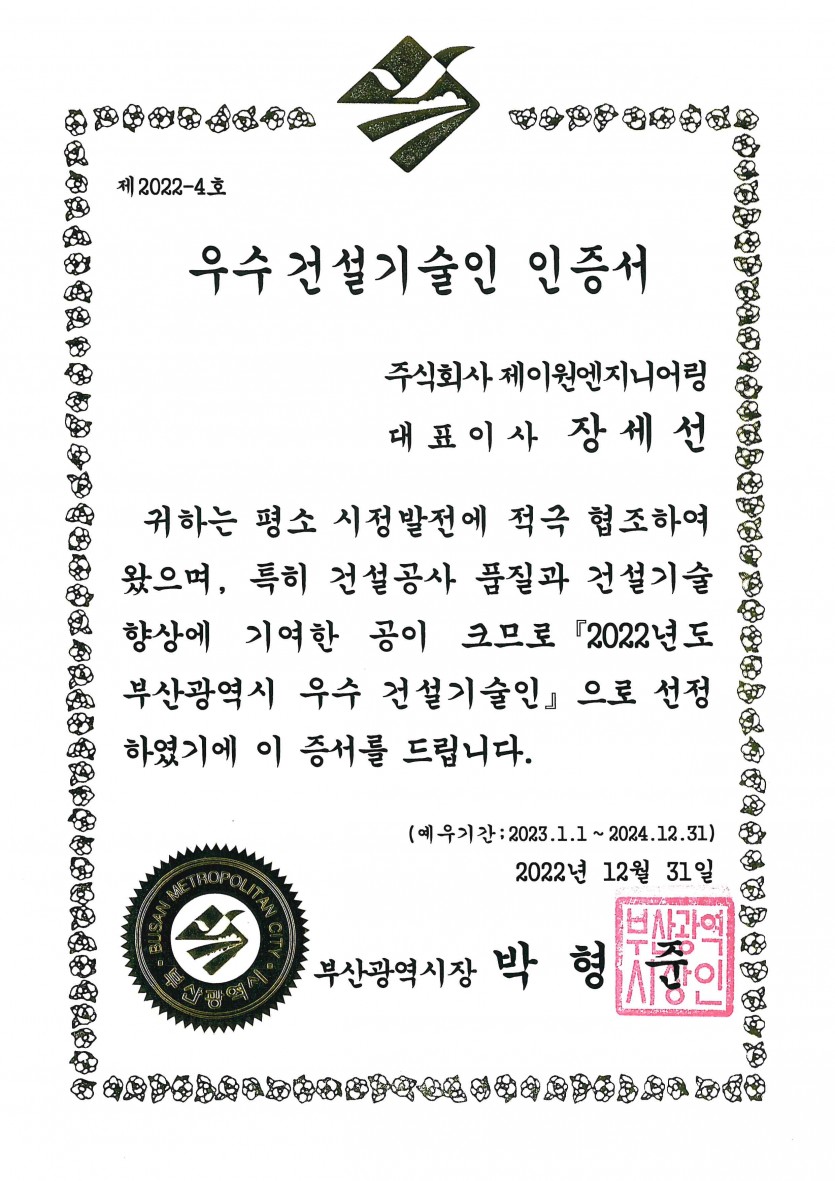 제2022-4호
우수 건설기술인 인증서
주식회사 제이원엔지니어링
대표이사 장세선
귀하는 평소 시정발전에 적극 협조하여
왔으며, 특히 건설공사 품질과 건설기술
향상에 기여한 공이 크므로 『2022년도
부산광역시 우수 건설기술인』으로 선정
하였기에 이 증서를 드립니다.
(예우기간:2023.1.1~2024.12.31)
2022년 12월 31일
부산광역시장 박형준
부산광역
시장인
BUSAN METROPOLITAN CITY
부산광역시